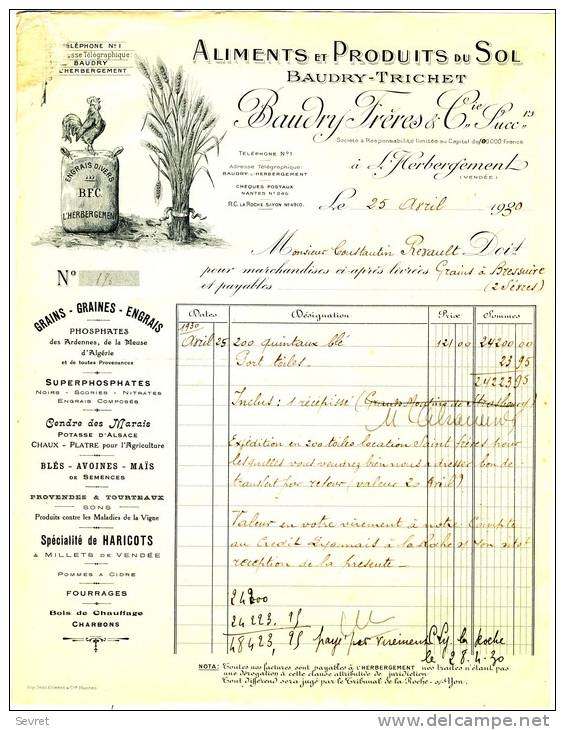 TÉLÉPHONE No 1
Adresse Télégraphique:
BAUDRY
L'HERBERGEMENT
ALIMENTS ET PRODUITS DU SOL
BAUDRY-TRICHET
Baudry Frères & Cie Succrs
Société à Responsabilité limitée au Capital de 100 000 Francs
TÉLÉPHONE No 1
Adresse Télégraphique:
BAUDRY - L'HERBERGEMENT
CHÈQUES POSTAUX
NANTES No 246
R.C. LA ROCHE S/YON No 4910.
à L'Herbergement
(VENDÉE)
ENGRAIS DIVERS
B.F.C.
L'HERBERGEMENT
Le 25 Avril 1930
Monsieur Constantin Renault Doit
pour marchandises ci-après livrées Grains à Bressuire
et payables (2 Sèvres)
No
GRAINS - GRAINES - ENGRAIS
PHOSPHATES
des Ardennes, de la Meuse
d'Algérie
et de toutes Provenances
SUPERPHOSPHATES
NOIRS - SCORIES - NITRATES
ENGRAIS COMPOSÉS
Cendre des Marais
POTASSE D'ALSACE
CHAUX - PLATRE pour l'Agriculture
BLÉS - AVOINES - MAÏS
DE SEMENCES
PROVENDES & TOURTEAUX
SONS
Produits contre les Maladies de la Vigne
Spécialité de HARICOTS
& MILLETS DE VENDÉE
POMMES A CIDRE
FOURRAGES
Bois de Chauffage
CHARBONS
Dates Désignation Prix Sommes
1930
Avril 25 200 quintaux blé 121 00 24200 00
Port toiles 23 95
24223 95
Inclus: 1 récépissé (Grands Moulins de Strasbourg)
Expédition en 200 toiles location Saint frères pour
lesquelles vous voudrez bien nous adresser bon de
transfert par retour (valeur 20 Avril).
Valeur en votre virement à notre Compte
au Crédit Lyonnais à la Roche s/ Yon sitôt
réception de la présente.
24200
24223, 95
48423, 95 payé par virement C. Ly. la Roche
le 28.4.30
NOTA: Toutes nos factures sont payables à L'HERBERGEMENT nos traites n'étant pas
une dérogation à cette clause attributive de juridiction
Tout différend sera jugé par le Tribunal de la Roche-s/-Yon.
Sevret
www.delcampe.net